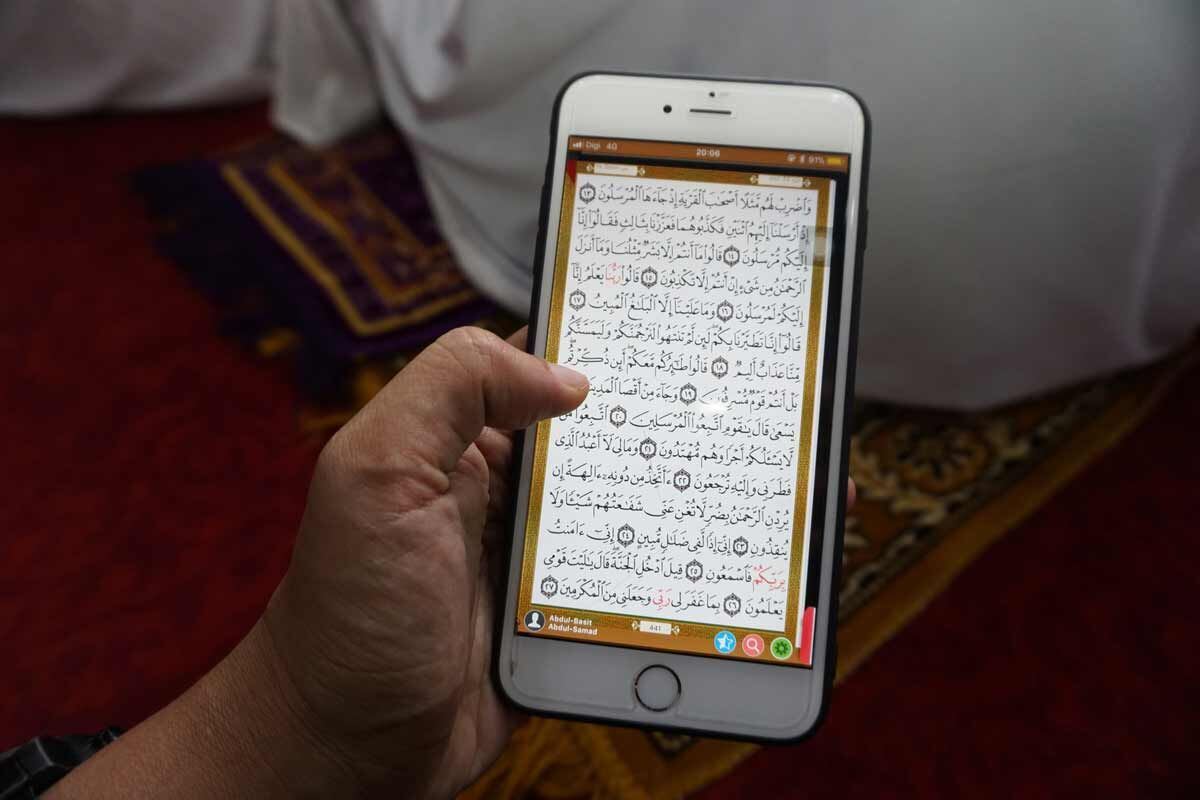 Digi 4G 20:06 91%
وَٱضْرِبْ لَهُم مَّثَلًا أَصْحَٰبَ ٱلْقَرْيَةِ إِذْ جَآءَهَا ٱلْمُرْسَلُونَ ١٣
إِذْ أَرْسَلْنَآ إِلَيْهِمُ ٱثْنَيْنِ فَكَذَّبُوهُمَا فَعَزَّزْنَا بِثَالِثٍ فَقَالُوٓا۟ إِنَّآ
إِلَيْكُم مُّرْسَلُونَ ١٤ قَالُوا۟ مَآ أَنتُمْ إِلَّا بَشَرٌ مِّثْلُنَا وَمَآ أَنزَلَ
ٱلرَّحْمَٰنُ مِن شَىْءٍ إِنْ أَنتُمْ إِلَّا تَكْذِبُونَ ١٥ قَالُوا۟ رَبُّنَا يَعْلَمُ إِنَّآ
إِلَيْكُمْ لَمُرْسَلُونَ ١٦ وَمَا عَلَيْنَآ إِلَّا ٱلْبَلَٰغُ ٱلْمُبِينُ ١٧
قَالُوٓا۟ إِنَّا تَطَيَّرْنَا بِكُمْ لَئِن لَّمْ تَنتَهُوا۟ لَنَرْجُمَنَّكُمْ وَلَيَمَسَّنَّكُم
مِّنَّا عَذَابٌ أَلِيمٌ ١٨ قَالُوا۟ طَٰٓئِرُكُم مَّعَكُمْ أَئِن ذُكِّرْتُم
بَلْ أَنتُمْ قَوْمٌ مُّسْرِفُونَ ١٩ وَجَآءَ مِنْ أَقْصَا ٱلْمَدِينَةِ
يَسْعَىٰ قَالَ يَٰقَوْمِ ٱتَّبِعُوا۟ ٱلْمُرْسَلِينَ ٢٠ ٱتَّبِعُوا۟ مَن
لَّا يَسْـَٔلُكُمْ أَجْرًا وَهُم مُّهْتَدُونَ ٢١ وَمَا لِىَ لَآ أَعْبُدُ ٱلَّذِى
فَطَرَنِى وَإِلَيْهِ تُرْجَعُونَ ٢٢ ءَأَتَّخِذُ مِن دُونِهِۦٓ ءَالِهَةً إِن
يُرِدْنِ ٱلرَّحْمَٰنُ بِضُرٍّ لَّا تُغْنِ عَنِّى شَفَٰعَتُهُمْ شَيْـًٔا وَلَا
يُنقِذُونِ ٢٣ إِنِّىٓ إِذًا لَّفِى ضَلَٰلٍ مُّبِينٍ ٢٤ إِنِّىٓ ءَامَنتُ
بِرَبِّكُمْ فَٱسْمَعُونِ ٢٥ قِيلَ ٱدْخُلِ ٱلْجَنَّةَ قَالَ يَٰلَيْتَ قَوْمِى
يَعْلَمُونَ ٢٦ بِمَا غَفَرَ لِى رَبِّى وَجَعَلَنِى مِنَ ٱلْمُكْرَمِينَ ٢٧
Abdul-Basit
Abdul-Samad
441